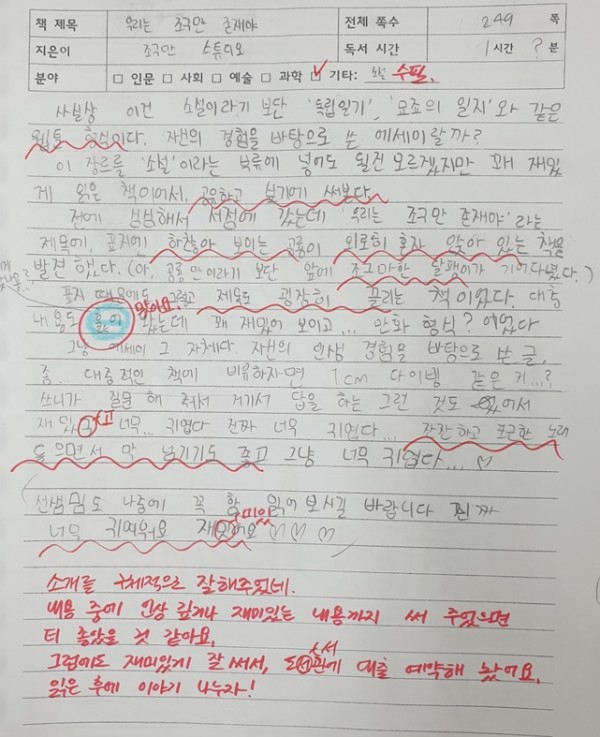 책 제목 우리는 조국만 존재야 전체 쪽수 249 쪽
지은이 조국만 스튜디오 독서 시간 1 시간 ? 분
분야 □ 인문 □ 사회 □ 예술 □ 과학 □ 기타: 소설 수필.
사실상 이건 소설이라기 보단 '독립일기', '요죠의 일지'와 같은
웹툰 형식이다. 자신의 경험을 바탕으로 쓴 에세이랄까?
이 장르를 '소설'이라는 부류에 넣어도 될진 모르겠지만 꽤 재밌
게 읽은 책이어서, 공유하고 싶기에 써본다.
전에 심심해서 서점에 갔는데 '우리는 조국만 존재야'라는
제목에, 표지에 하찮아 보이는 공룡이 외로히 혼자 앉아 있는 책을
발견 했다. (아, 공룡만이라기 보단 앞에 조그마한 달팽이가 기어다녔다.)
표지 때문에도 그렇고 제목도 굉장히 끌리는 책이었다. 대충
내용도 훑어 봤는데 꽤 재밌어 보이고... 만화 형식? 이었다
그냥 에세이 그 자체다. 자신의 인생 경험을 바탕으로 쓴 글.
좀.. 대중적인 책에 비유하자면 1cm 다이빙 같은 거...?
쓰니가 질문 해 줘서 거기서 답을 하는 그런 것도 있어서
재밌고 너무... 귀엽다 진짜 너무 귀엽다... 잔잔하고 포근한 노래
들으면서 막 넘기기도 좋고 그냥 너무 귀엽다... ♡
(선생님도 나중에 꼭 함 읽어 보시길 바랍니다 진짜
너무 귀여워요 재밌어요 ♡♡♡♡)
소개를 구체적으로 잘해주었네.
내용 중에 인상 깊거나 재미있는 내용까지 써 주었으면
더 좋았을 것 같아요.
그럼에도 재미있게 잘 써서, 도서관에 대출 예약해 놨어요.
읽은 후에 이야기 나누자!